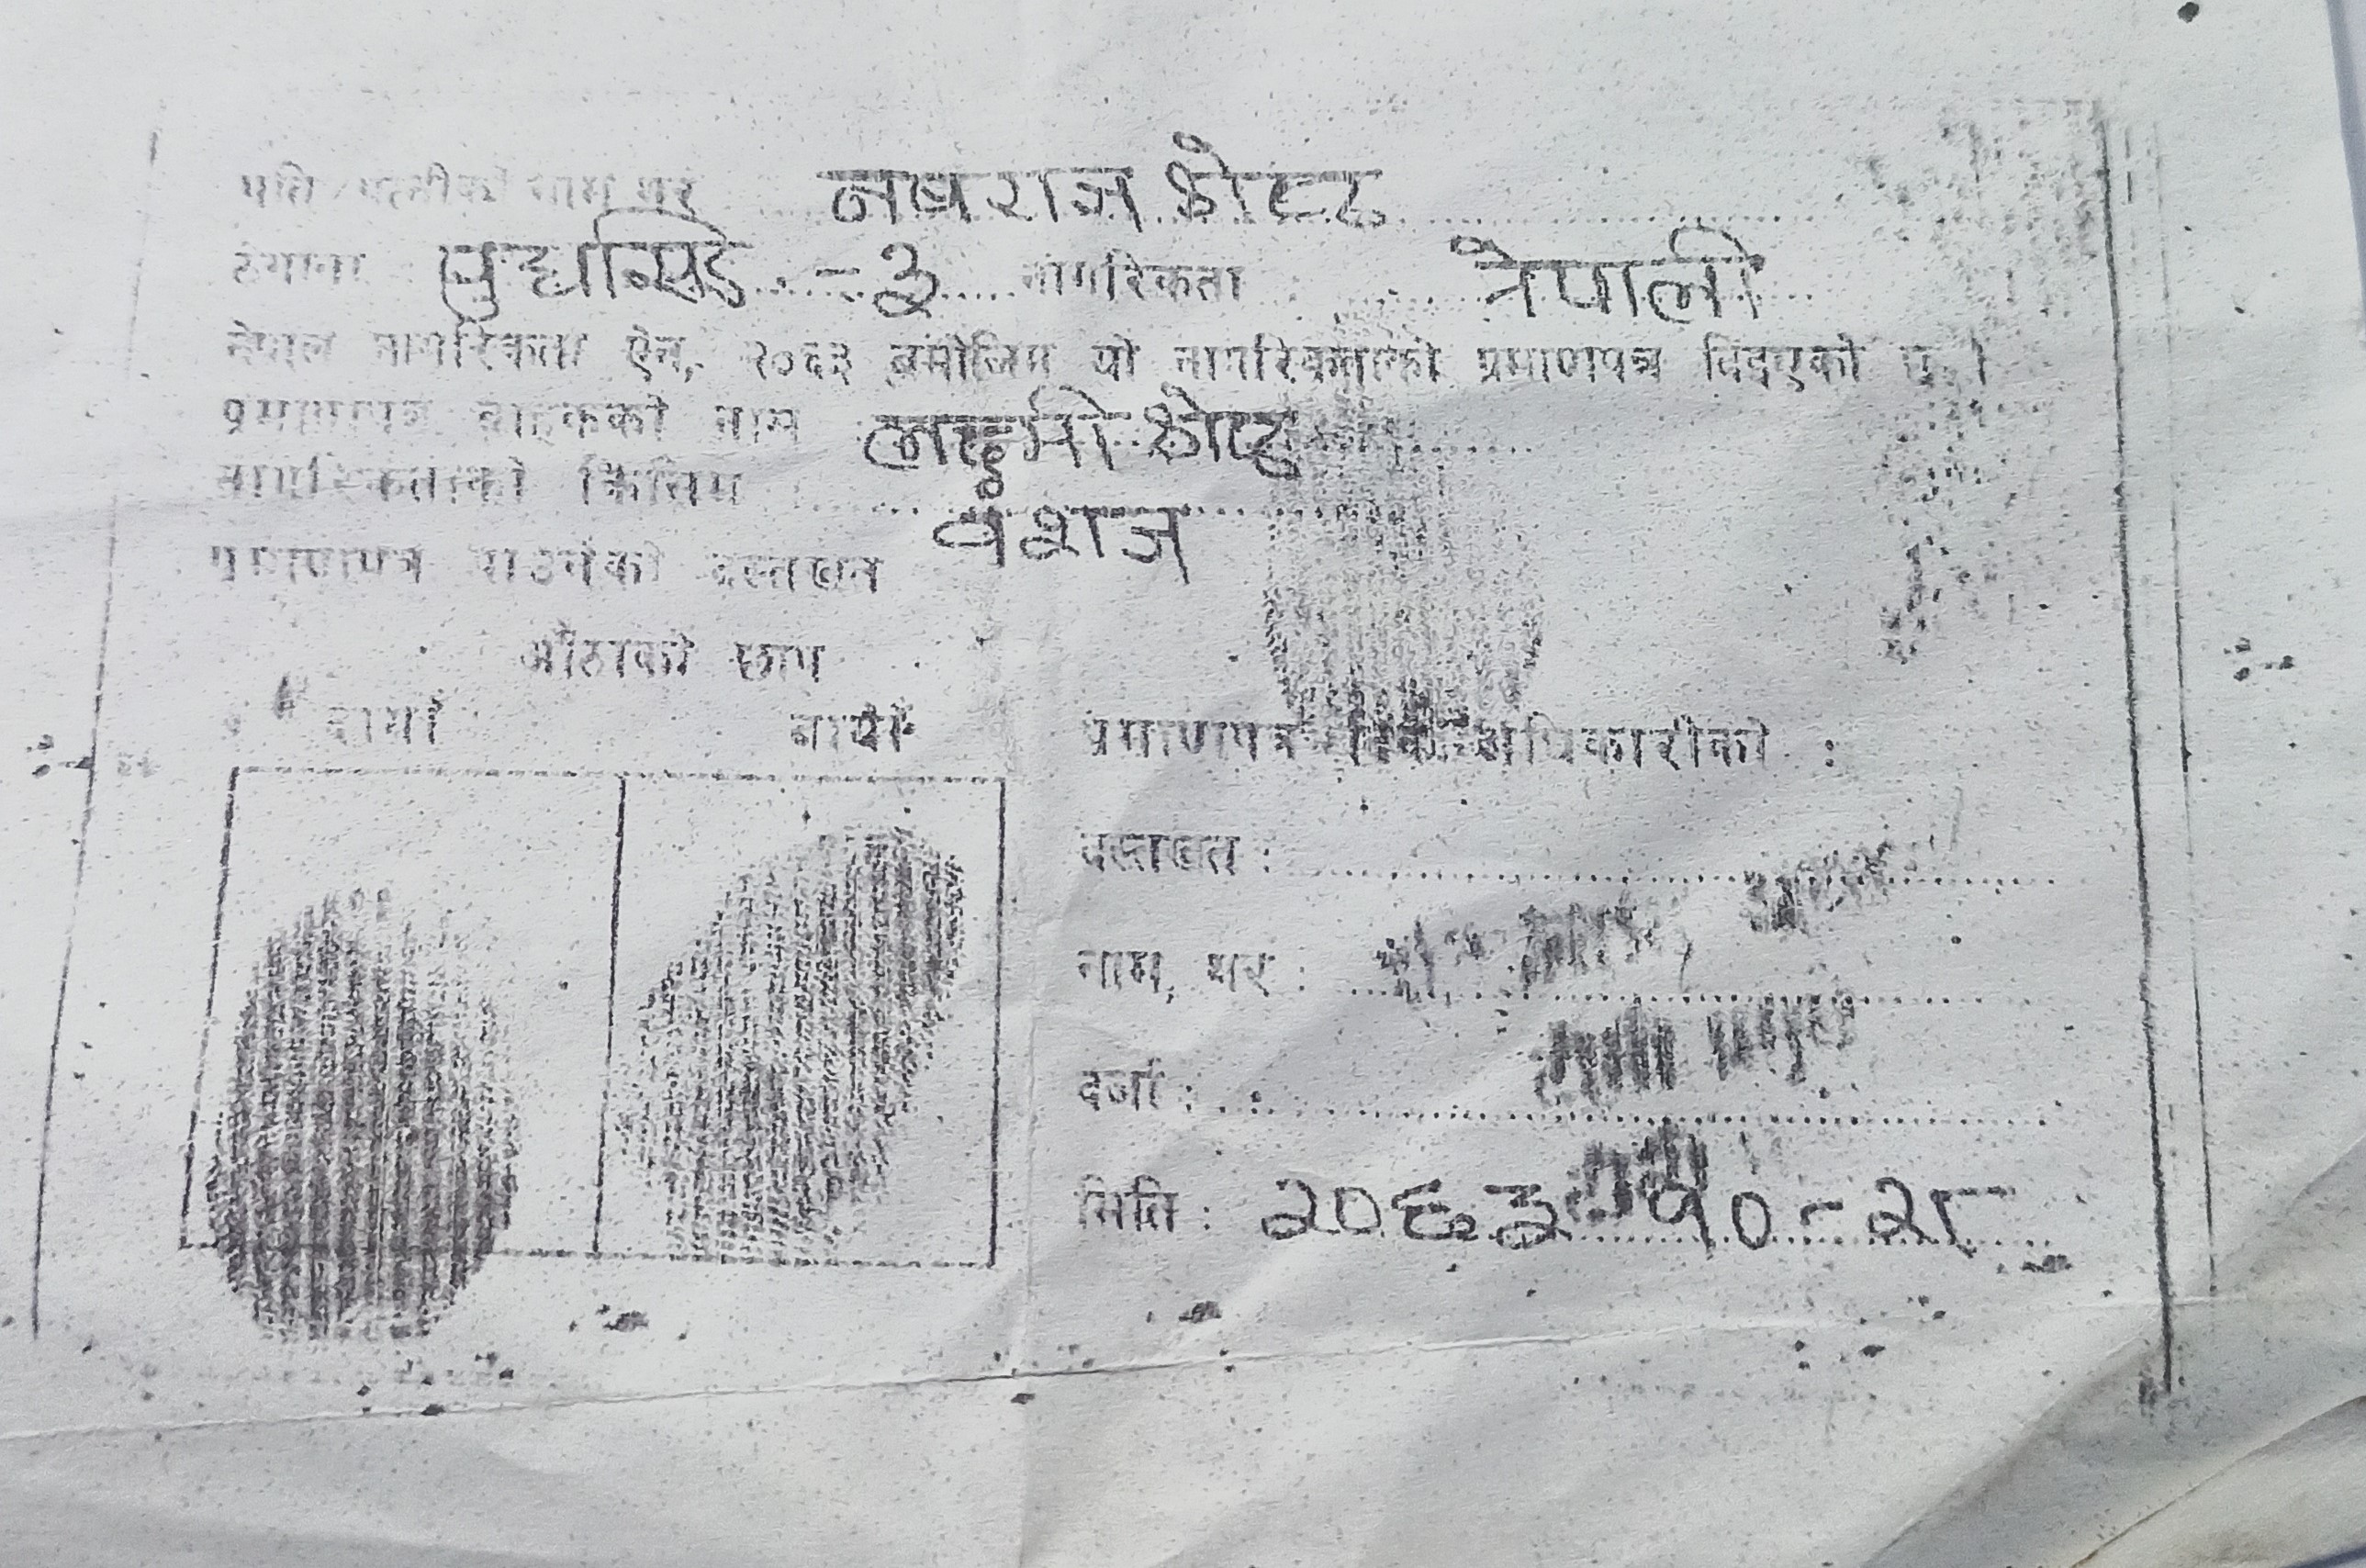 पति / पत्नीको नाम थर नवराज श्रेष्ठ
ठेगाना : -३ नागरिकता : नेपाली
नेपाल नागरिकता ऐन, २०६३ बमोजिम यो नागरिकताको प्रमाणपत्र दिइएको छ ।
प्रमाणपत्र वाहकको नाम : लक्ष्मी श्रेष्ठ
नागरिकताको किसिम : वंशज
प्रमाणपत्र पाउनेको दस्तखत
औंठाको छाप
दायाँ बायाँ
प्रमाणपत्र दिने अधिकारीको :
दस्तखत :
नाम, थर :
दर्जा :
मिति : २०६३-१०-२८